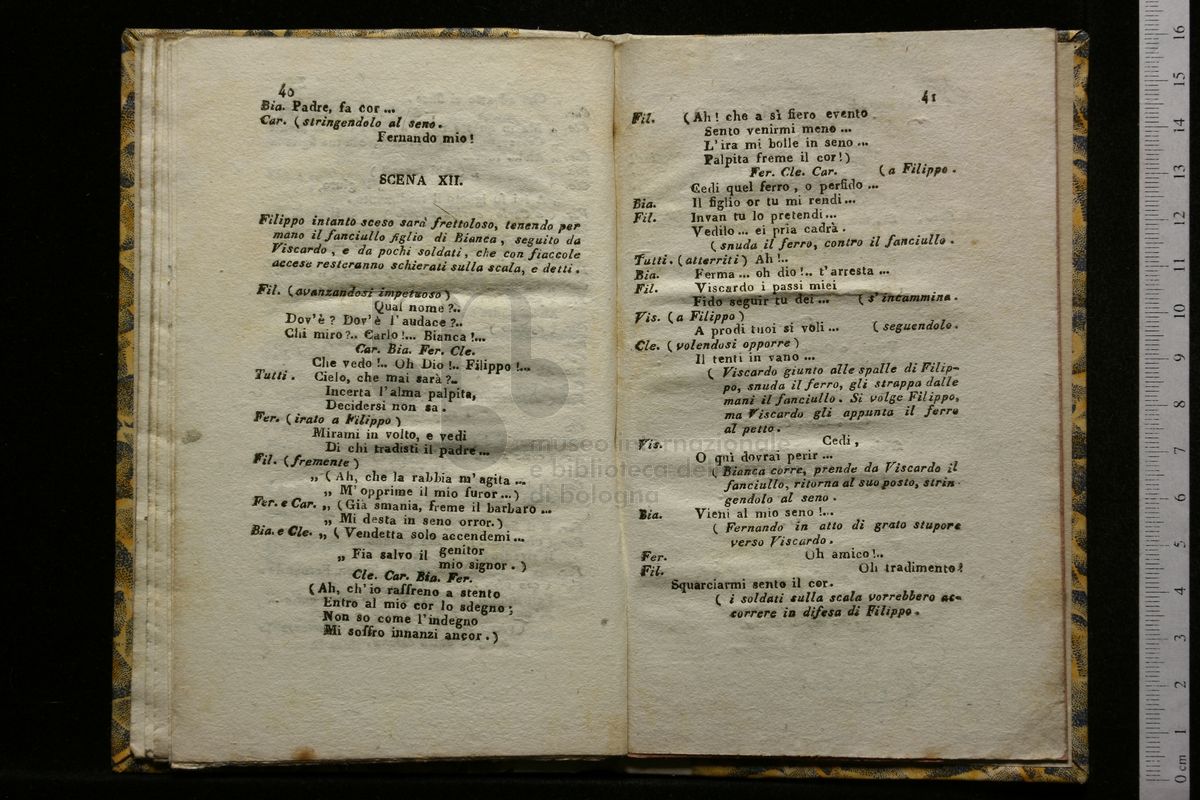 40
Bia. Padre, fa cor ...
Car. (stringendolo al seno.
Fernando mio!
SCENA XII.
Filippo intanto sceso sarà frettoloso, tenendo per
mano il fanciullo figlio di Bianca, seguito da
Viscardo, e da pochi soldati, che con fiaccole
accese resteranno schierati sulla scala, e detti.
Fil. (avanzandosi impetuoso)
Qual nome?..
Dov'è? Dov'è l'audace?..
Chi miro?.. Carlo!... Bianca!...
Car. Bia. Fer. Cle.
Che vedo!.. Oh Dio!.. Filippo!...
Tutti. Cielo, che mai sarà?..
Incerta l'alma palpita,
Decidersi non sa.
Fer. (irato a Filippo)
Mirami in volto, e vedi
Di chi tradisti il padre...
Fil. (fremente)
„ (Ah, che la rabbia m'agita ...
„ M'opprime il mio furor...)
Fer. e Car. „ (Già smania, freme il barbaro ...
„ Mi desta in seno orror.)
Bia. e Cle. „ (Vendetta solo accendemi...
„ Fia salvo il genitor
mio signor.)
Cle. Car. Bia. Fer.
(Ah, ch'io raffreno a stento
Entro al mio cor lo sdegno;
Non so come l'indegno
Mi soffro innanzi ancor.)
41
Fil. (Ah! che a sì fiero evento
Sento venirmi meno ...
L'ira mi bolle in seno ...
Palpita freme il cor!)
Fer. Cle. Car. (a Filippo.
Cedi quel ferro, o perfido ...
Bia. Il figlio or tu mi rendi...
Fil. Invan tu lo pretendi...
Vedilo... ei pria cadrà.
(snuda il ferro, contro il fanciullo.
Tutti. (atterriti) Ah!..
Bia. Ferma... oh dio!.. t'arresta ...
Fil. Viscardo i passi miei
Fido seguir tu dei ... (s'incammina.
Vis. (a Filippo)
A prodi tuoi si voli... (seguendolo.
Cle. (volendosi opporre)
Il tenti in vano ...
(Viscardo giunto alle spalle di Filip-
po, snuda il ferro, gli strappa dalle
mani il fanciullo. Si volge Filippo,
ma Viscardo gli appunta il ferro
al petto.
Vis. Cedi,
O quì dovrai perir ...
(Bianca corre, prende da Viscardo il
fanciullo, ritorna al suo posto, strin-
gendolo al seno.
Bia. Vieni al mio seno!...
(Fernando in atto di grato stupore
verso Viscardo.
Fer. Oh amico!..
Fil. Oh tradimento!
Squarciarmi sento il cor.
(i soldati sulla scala vorrebbero ac-
correre in difesa di Filippo.
museo internazionale
e biblioteca della
di bologna
0 cm 1 2 3 4 5 6 7 8 9 10 11 12 13 14 15 16